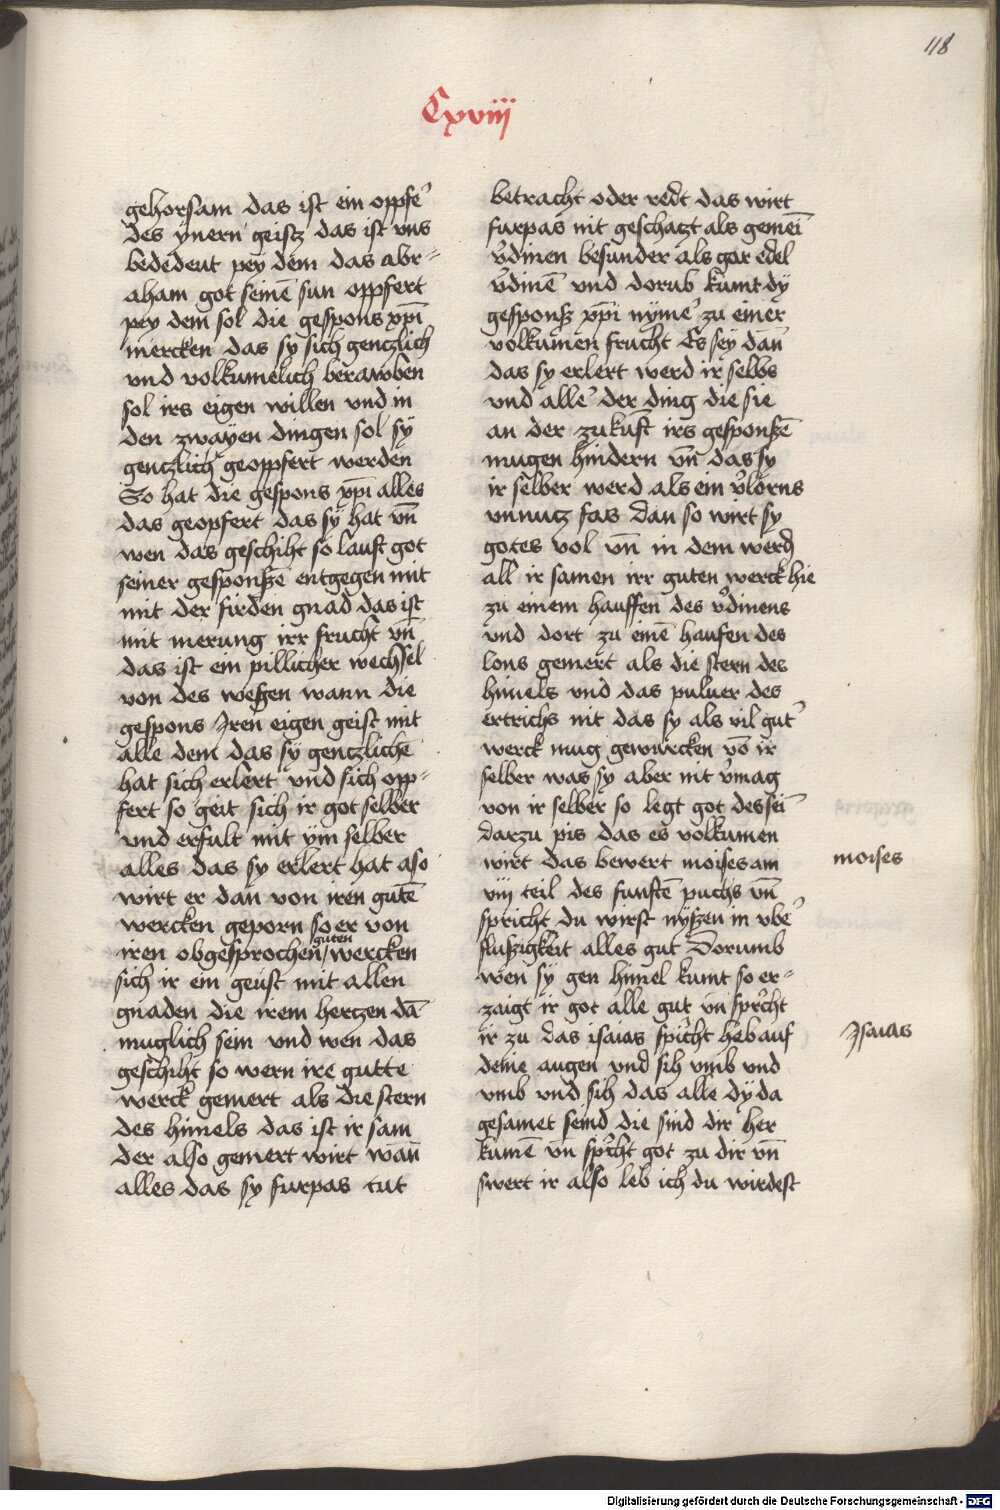 118
Cxviii
gehorsam das ist ein oppfe᷑
des ynern geistz das ist vns
bededeut pey dem das abr=
aham got seinē sun oppfert
pey dem sol die gespons xp̄i
mercken das sy sich gentzlich
vnd volkumelich berawben
sol irs eigen willen vnd in
den zwayen dingen sol sy
gentzlich geoppfert werden
So hat die gespons xp̄i alles
das geopfert das sy hat vn̄
wen das geschiht so lauft got
seiner gesponszē entgegen mit
mit der firden gnad das ist
mit merung irr frucht vn̄
das ist ein pillicher wechsel
von des wegen wann die
gespons Iren eigen geist mit
alle dem das sy gentzlichē
hat sich erlert vnd sich opp=
fert so geit sich ir got selber
vnd erfult mit ym selber
alles das sy erlert hat aso
wirt er dan̄ von iren gutē
wercken geporn so er von
iren obgesprochen guten wercken
sich ir ein geust mit allen
gnaden die irem hertzen dā
muglich sein vnd wen das
geschiht so wern ire gutte
werck gemert als die stern
des himels das ist ir sam
der also gemert wirt wan̄
alles das sy furpas tut
betracht oder redt das wirt
furpas nit geschatzt als gemei̅
v᷑dinen besunder als gar edel
v᷑dinē vnd dorub kumt dy
gesponsz xp̄i nyme᷑ zu einer
volkumen frucht Es sey dan̄
das sy erlert werd ir selbs
vnd alle᷑ der ding die sie
an der zukūft irs gesponszē
mugen hindern vn̄ das sy
ir selber werd als ein v᷑lorns
vnnutz fas dan so wirt sy
gotes vol vn̄ in dem werd
all ir samen irr guten werck hie
zu einem hauffen des v᷑dinens
vnd dort zu einē haufen des
lons gemert als die stern des
himels vnd das puluer des
ertrichs nit das sy als vil gut᷑
werck mug gewurcken vō ir
selber was sy aber nit v᷑mag
von ir selber so legt got des sei̅
darzu pis das es volkumen
wirt das bewert moises am
viij teil des funftē puchs vn̄
spricht du wirst nyszen in vbe᷑
fluszigkeit alles gut Dorumb
wen sy gen himel kumt so er=
zaigt ir got alle gut vn̄ sp᷑cht
ir zu das isaias spicht heb auf
deine augen vnd sih vmb vnd
vmb vnd sih das alle dy da
gesamet seind die sind dir her
kumē vn̄ sp᷑cht got zu dir vn̄
swert ir also leb ich du wirdest
moises
Isaias
Digitalisierung gefördert durch die Deutsche Forschungsgemeinschaft - DFG